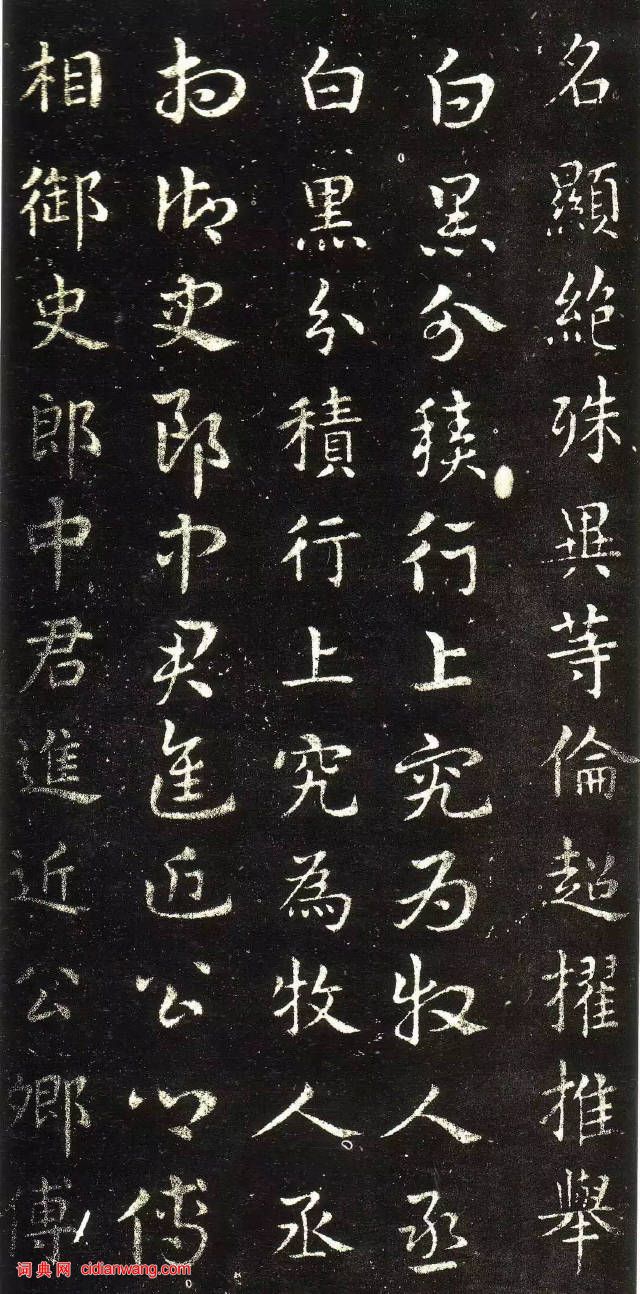 名顯絶殊異等倫超擢推舉
白黑分積行上究为牧人丞
白黑分積行上究為牧人丞
相御史郎中君進近公卿傅
相御史郎中君進近公卿傅
词典网 cidianwang.com